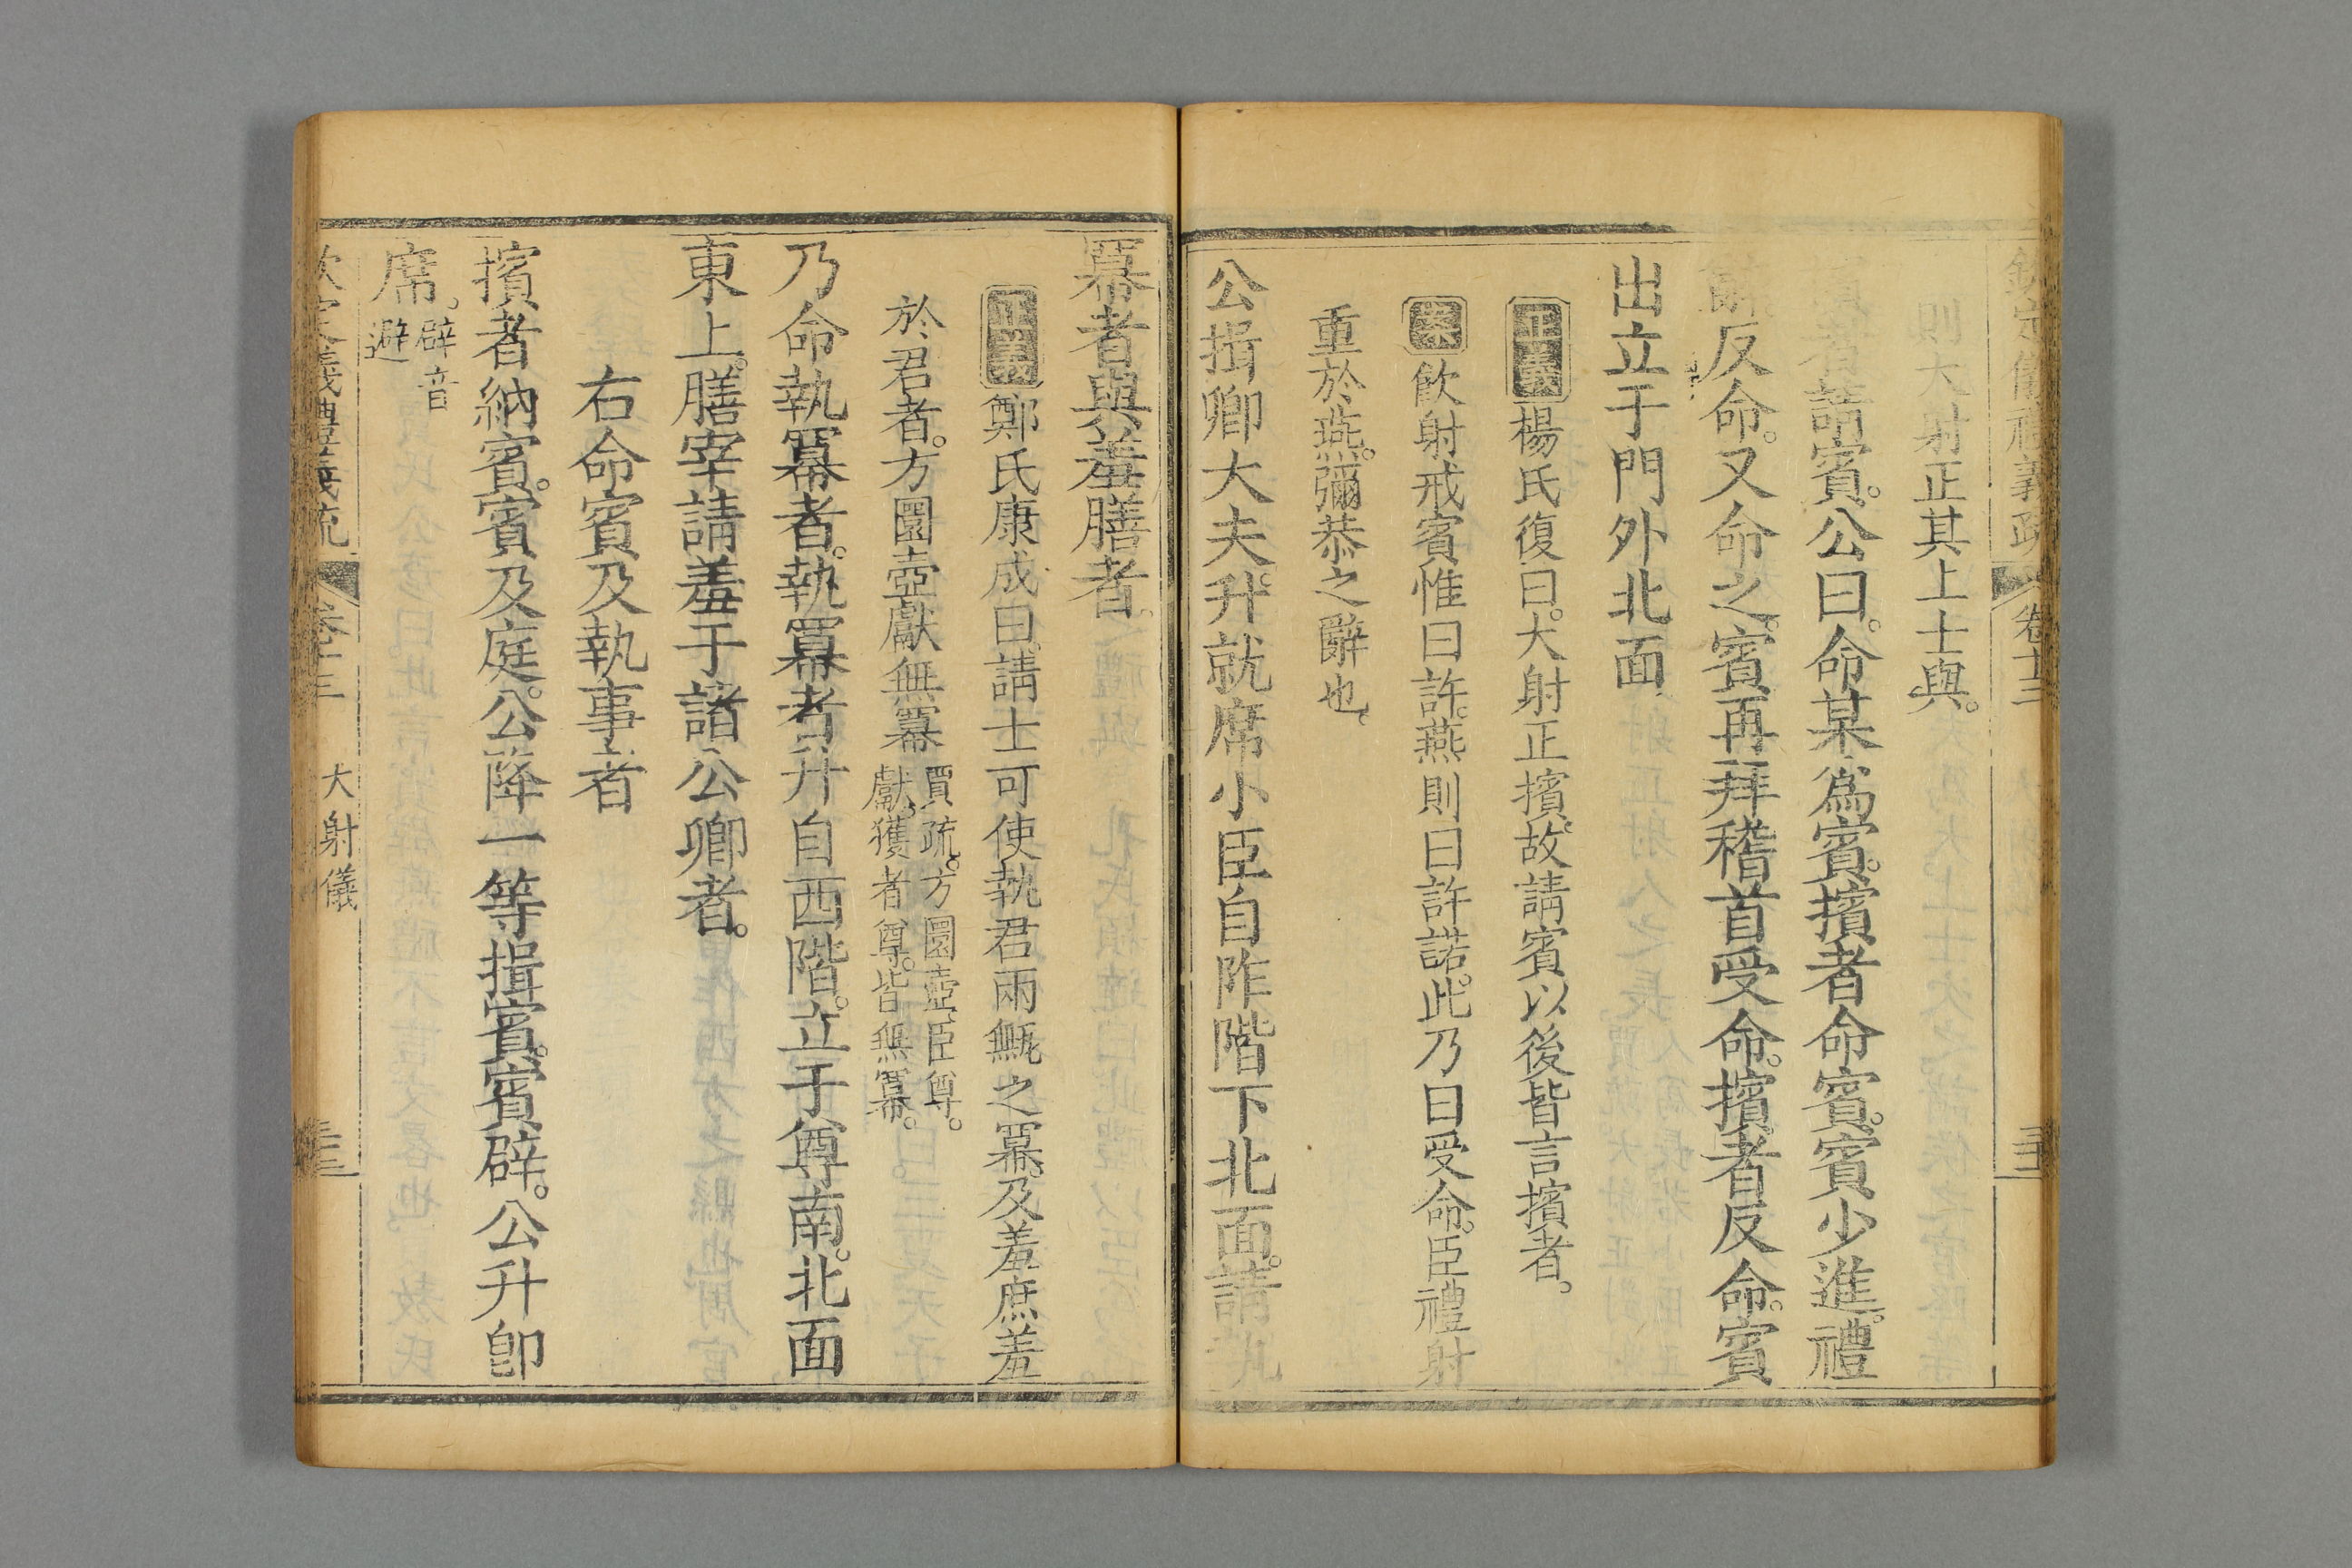 欽定儀禮義疏 卷十三
四大射正其上士與。
擯者請賓。公曰。命某為賓。擯者命賓。賓少進。禮
辭反命。又命之。賓再拜稽首受命。擯者反命。賓
出立于門外北面
正義楊氏復曰。大射正擯。故請賓以後皆言擯者。
案飲射戒賓惟曰許。燕則曰許諾。此乃曰受命。臣禮射
重於燕。彌恭之辭也。
公揖卿大夫。升就席小臣自阼階下北面。請執
冪者與羞膳者。
正義鄭氏康成曰。請士可使執君兩甒之冪。及羞庶羞
於君者。方圜壺獻無冪
賈疏。方圜壺臣尊。
獻。獲者尊。皆無冪。
乃命執冪者。執冪者升自西階。立于尊南。北面
東上。膳宰請羞于諸公卿者。
右命賓及執事者
擯者納賓。賓及庭。公降一等揖賓。賓辟。公升卽
席。
辟音
避
欽定儀禮義疏 卷十三 大射儀